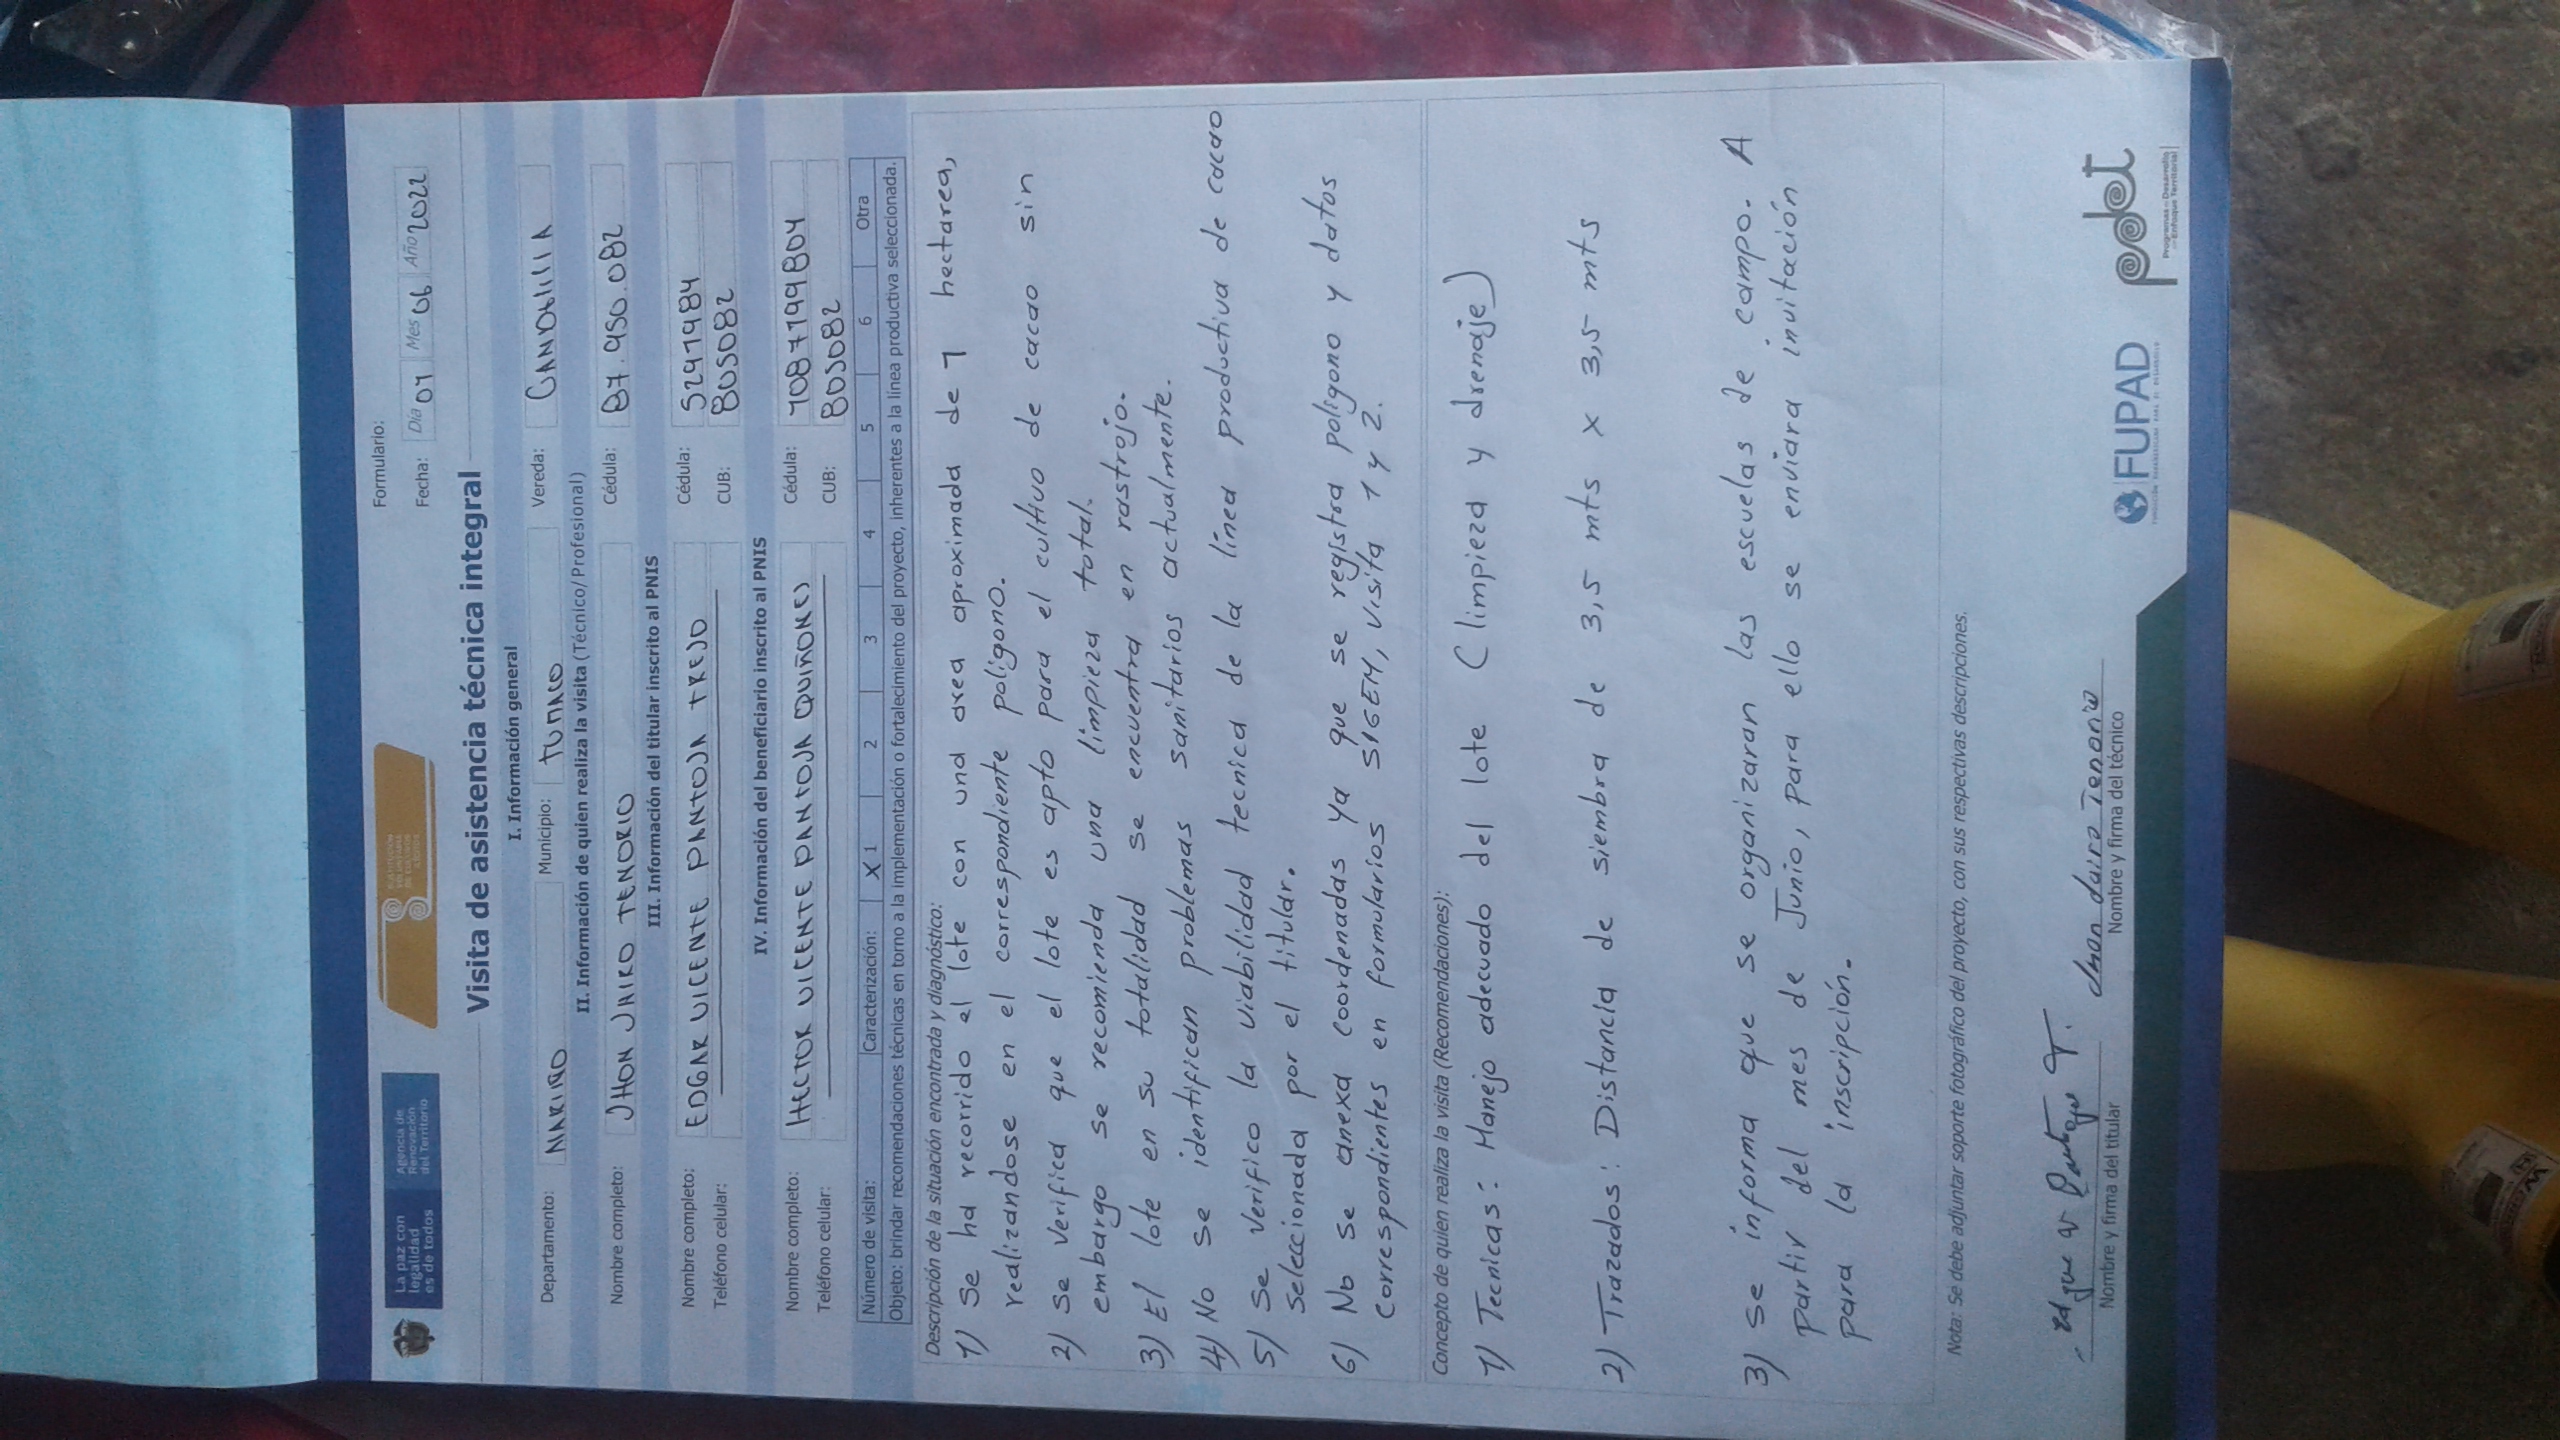 La paz con
legalidad
es de todos
Agencia de
Renovación
del Territorio
Formulario:
Fecha: Día 01 Mes 06 Año 2022
Visita de asistencia técnica integral
I. Información general
Departamento: NARIÑO Municipio: TUMACO Vereda: CANDELILLA
II. Información de quien realiza la visita (Técnico/Profesional)
Nombre completo: JHON JAIRO TENORIO Cédula: 87.950.082
III. Información del titular inscrito al PNIS
Nombre completo: EDGAR VICENTE PANTOJA TREJO Cédula: 5291984
Teléfono celular: CUB: 805082
IV. Información del beneficiario inscrito al PNIS
Nombre completo: HECTOR VICENTE PANTOJA QUIÑONES Cédula: 1087799804
Teléfono celular: CUB: 805082
Número de visita: Caracterización: X 1 2 3 4 5 6 Otra
Objeto: brindar recomendaciones técnicas en torno a la implementación o fortalecimiento del proyecto, inherentes a la línea productiva seleccionada.
Descripción de la situación encontrada y diagnóstico:
1) Se ha recorrido el lote con una area aproximada de 1 hectarea,
realizandose en el correspondiente polígono.
2) se verifica que el lote es apto para el cultivo de cacao sin
embargo se recomienda una limpieza total.
3) El lote en su totalidad se encuentra en rastrojo.
4) No se identifican problemas sanitarios actualmente.
5) Se verifico la viabilidad tecnica de la línea productiva de cacao
Seleccionada por el titular.
6) No se anexa coordenadas ya que se registra poligono y datos
correspondientes en formularios SIGEM, visita 1 y 2.
Concepto de quien realiza la visita (Recomendaciones):
1) Tecnicas: Manejo adecuado del lote (limpieza y drenaje)
2) Trazados: Distancia de siembra de 3,5 mts x 3,5 mts
3) se informa que se organizaran las escuelas de campo. A
partir del mes de Junio, para ello se enviara invitación
para la inscripción.
Nota: Se debe adjuntar soporte fotográfico del proyecto, con sus respectivas descripciones.
Jhon Jairo Tenorio
Nombre y firma del titular
Nombre y firma del técnico
FUPAD
pdet
Programas de Desarrollo
con Enfoque Territorial